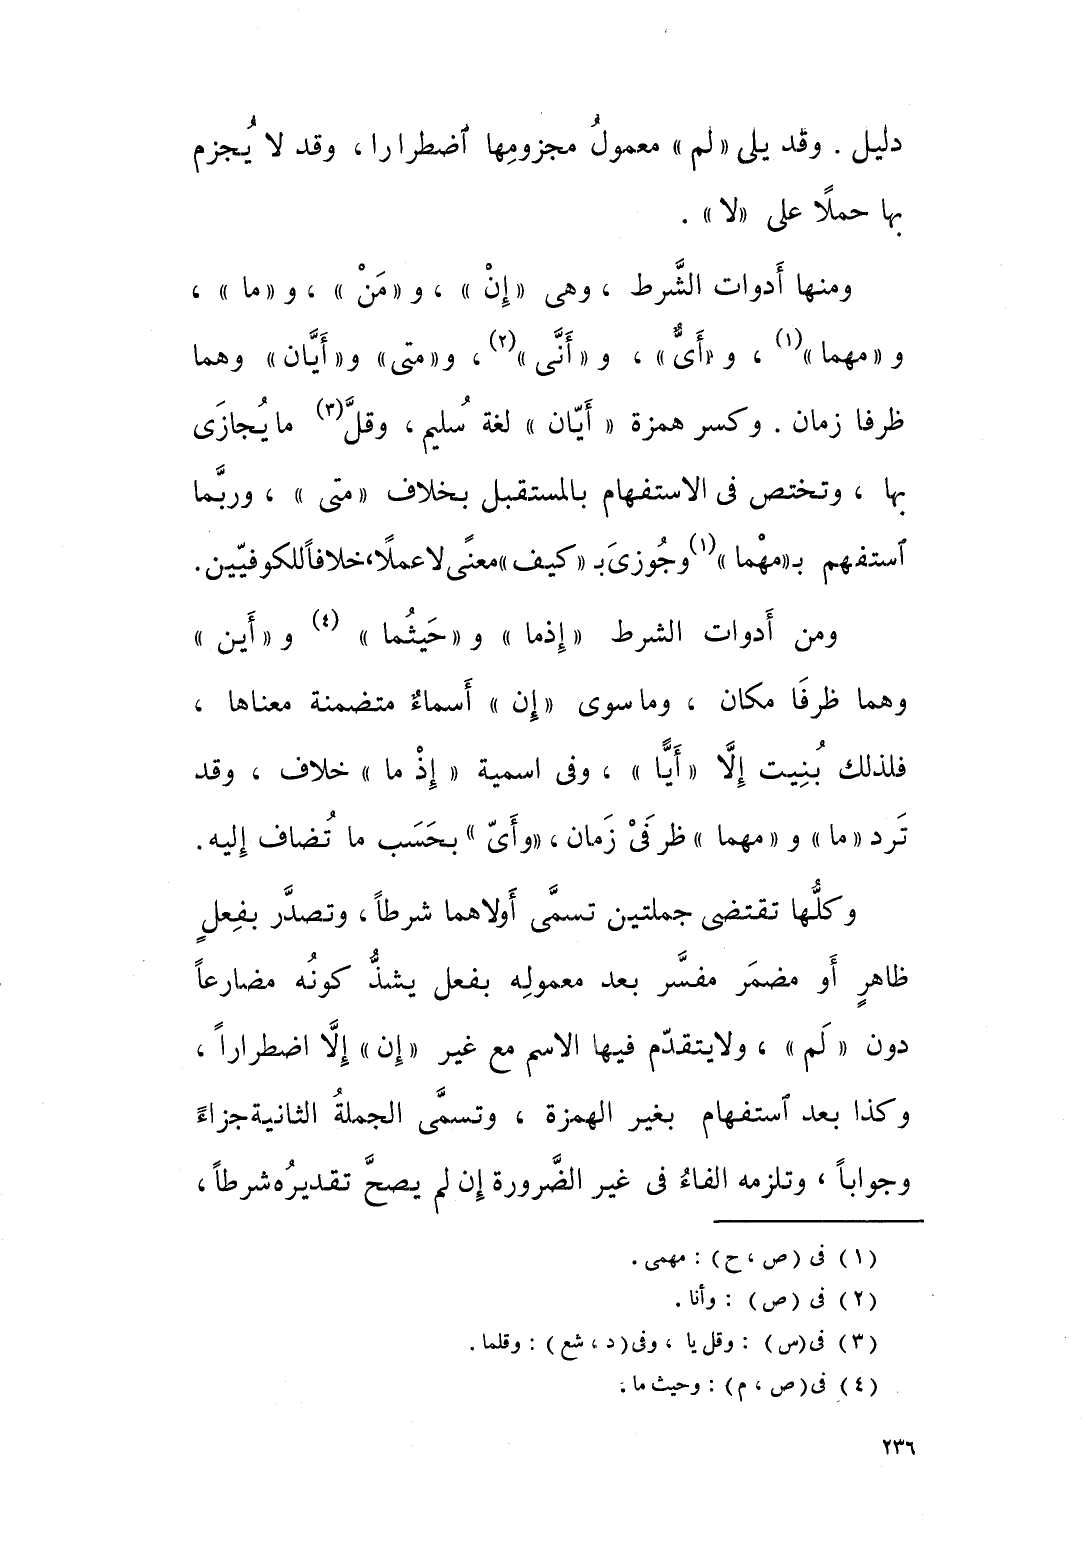 دليل . وقد يلى «لم» معمولُ مجزومِها ٱضطرارا ، وقد لا يُجزم
بها حملًا على «لا» .
ومنها أَدوات الشَّرط ، وهى «إِنْ» ، و«مَنْ» ، و«ما» ،
و«مهما»(١) ، و«أَىٌّ» ، و«أَنَّى»(٢) ، و«متى» و«أَيَّان» وهما
ظرفا زمان . وكسر همزة «أَيّان» لغة سُليم ، وقلَّ(٣) ما يُجازَى
بها ، وتختص فى الاستفهام بالمستقبل بخلاف «متى» ، وربَّما
ٱستفهم بـ«مهْما»(١) وجُوزىَ بـ«كيف» معنًى لا عملًا، خلافاً للكوفيّين.
ومن أَدوات الشرط «إِذما» و«حَيثُما» (٤) و«أَين»
وهما ظرفَا مكان ، وما سوى «إِن» أَسماءٌ متضمنة معناها ،
فلذلك بُنِيت إِلَّا «أَيًّا» ، وفى اسمية «إِذْ ما» خلاف ، وقد
تَرد «ما» و«مهما» ظرفَىْ زَمان ، «وأَىّ» بحَسَب ما تُضاف إِليه .
وكلُّها تقتضى جملتين تسمَّى أَولاهما شرطاً ، وتصدَّر بفِعلٍ
ظاهرٍ أَو مضمَر مفسَّر بعد معمولِه بفعل يشذُّ كونُه مضارعاً
دون «لَم» ، ولايتقدّم فيها الاسم مع غير «إِن» إِلَّا اضطراراً ،
وكذا بعد ٱستفهام بغير الهمزة ، وتسمَّى الجملةُ الثانية جزاءً
وجواباً ، وتلزمه الفاءُ فى غير الضَّرورة إِن لم يصحَّ تقديرُه شرطاً ،
(١) فى (ص ، ح) : مهمى .
(٢) فى (ص) : وأنا .
(٣) فى (س) : وقل يا ، وفى (د ، شع) : وقلما .
(٤) فى (ص ، م) : وحيث ما .
٢٣٦